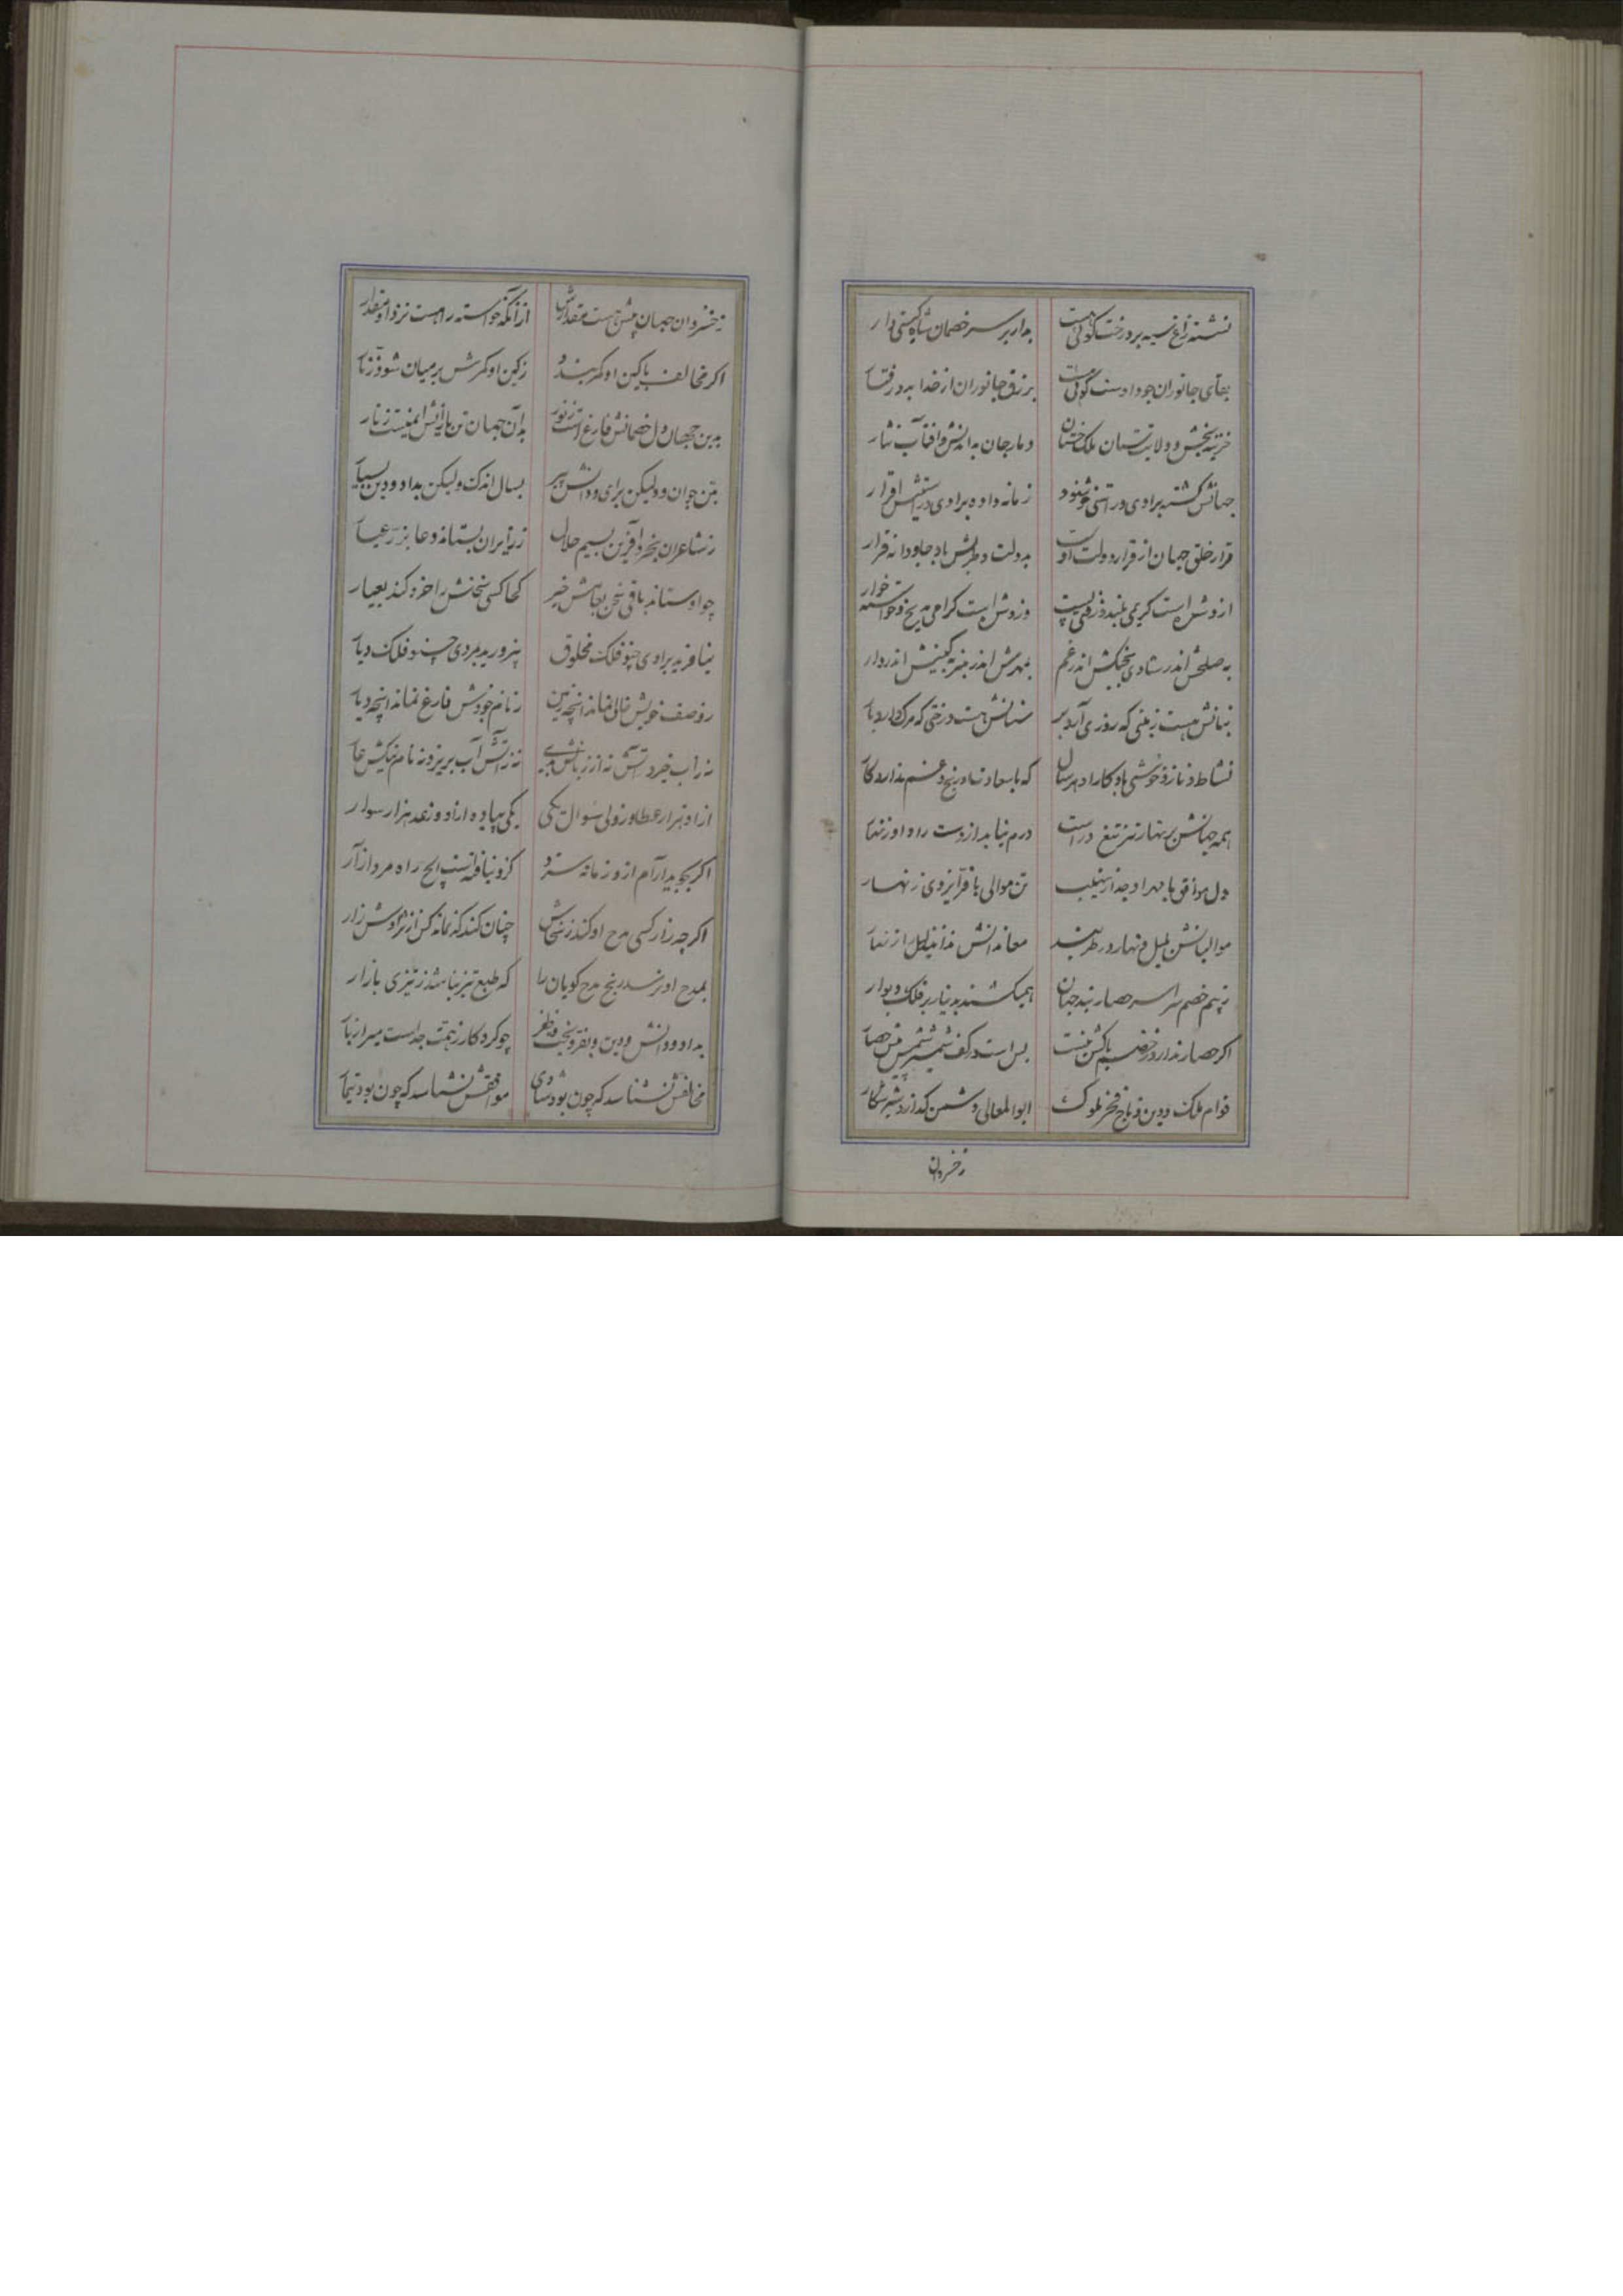 نشسته زاغ سیه بر درخت گوئی هست بدار بر سر خصمان شاه گیتی دار
بقای جانوران جود اوست گوئی هست برزق جانوران از خدا پذرفتار
خزینه بخش و ولایت ستان ملک دمار جان بداندیش و آفتاب نثار
جهانش گشته برادی و راستی خشنود زمانه داده برادی و راستیش اقرار
قرار خلق جهان از قرار دولت اوست بدولت و طربش باد جاودانه قرار
ازوش است کریمی بلند و زفتی پست وزوش است گرامی مدیح و خواسته خوار
به صلحش اندر شادی بجنگش اندر غم بمهرش اندر منبر به کینش اندر دار
بنانش هست زمینی که روزی آرد بر سنانش هست درختی که مرگ دارد بار
نشاط و ناز و خوشی باد کار او هر سال که با سعادت او رنج و غم ندارد کار
همه جهانش بزنهار تیز تیغ در است درم نیابد از دست راد او زنهار
دل موافق با مهر او جدا ز نهیب تن موالی با فر ایزدی زنهار
موالیانش لیل و نهار در طربند معاندانش ندانند لیل را ز نهار
ز بیم خصم سراسر حصار بند جهان همی کشند بدینار بر فلک دیوار
اگر حصار ندارد ز خصم باکش نیست بس است در کف شمشیر پیش حصار
قوام ملکت و دین و تاج فخر ملوک ابوالمعالی دشمن گداز و شیر شکار
ز خسروان
ز خسروان جهان بیش هست مقدارش از آنکه خواسته را هست نزد او مقدار
اگر مخالف با کین او کمر بندد ز کین او کمرش بر میان شود زنار
بدین جهان دل خصمانش فارغ است ز نور بدان جهان تن یارانش ایمنست ز نار
بتن جوان و ولیکن برای و دانش پیر بسال اندک و لیکن بداد و دین بسیار
ز شاعران بخرد آفرین بسیم حلال ز زایران بستاند دعا بزر عیار
چو او ستاند باقی سخن بجاهش خیر کجا کسی سخنش را خرد کند بعیار
نیافرید برادی چنو فلک مخلوق نپرورید بمردی چنو فلک دیار
ز وصف خویش خالی نماند آنچه زمین ز نام جودش فارغ نماند آنچه دیار
نه ز آب خیزد آتش نه از زبانش بدی نه ز آتش آب بریزد نه نام نیکش عار
از او هزار عطا و ز ولی سوال یکی یکی پیاده از او و ز عدو هزار سوار
اگر بجوید آرام از و زمانه سزد کزو نیافته است ایچ راد مرد آزار
اگر چه زار کسی مدح او کند ز سخاش چنان کند که نماند کس از فروش زار
بمدح او نرسد رنج مدح گویان را که طبع تیز نباشد ز تیزی بازار
بداد و دانش و دین و بفر و بخت و ظفر چو کردگار ز همت جداست میر از یار
مخالفش نشناسد که چون بود شادی موافقش نشناسد که چون بود تیمار